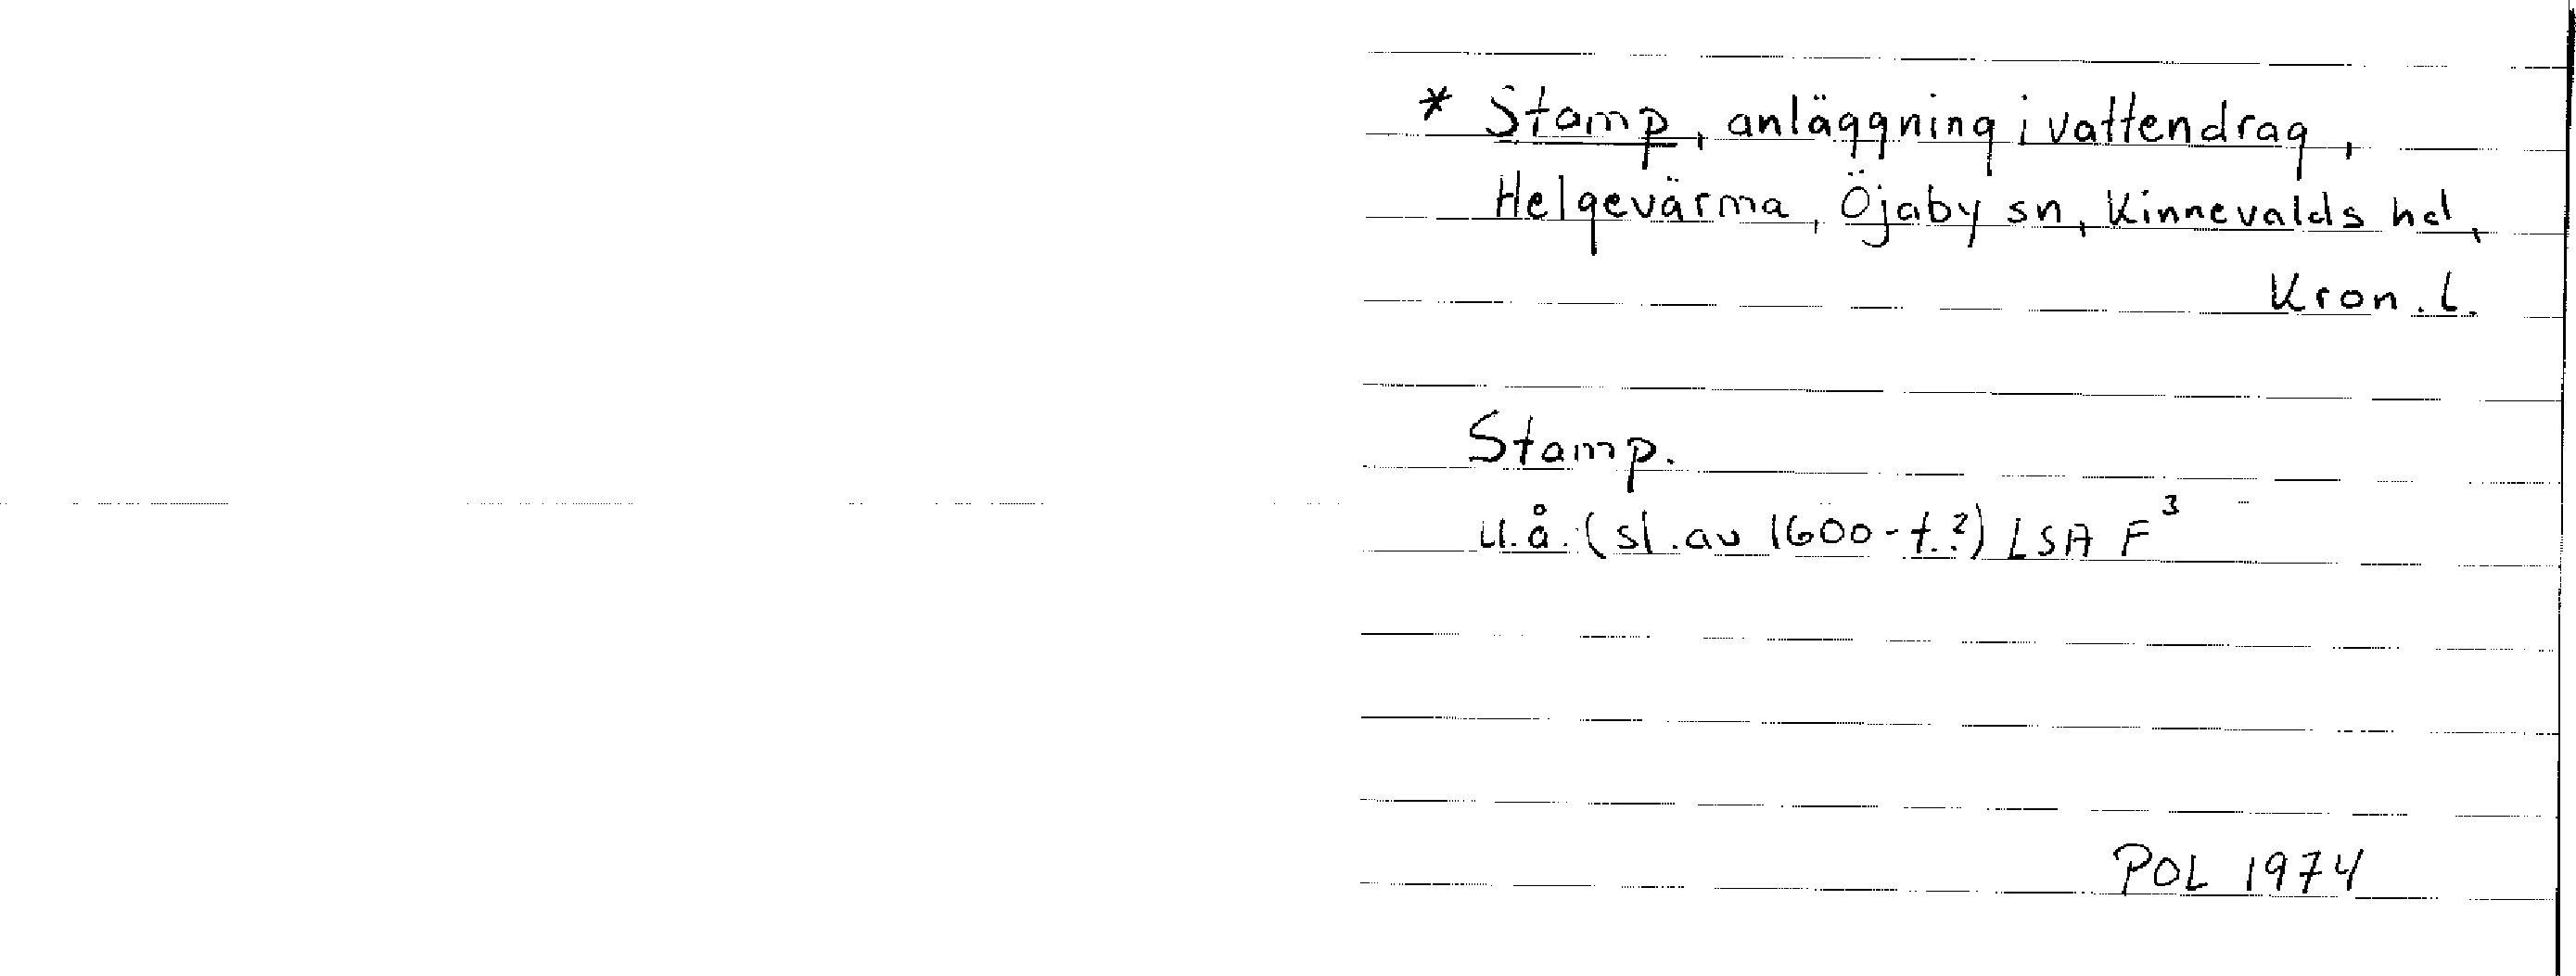 * Stamp, anläggning i vattendrag,
Helgevärma, Öjaby sn, Kinnevalds hd,
Kron. l.
Stamp.
u.å. (sl. av 1600-t.?) LSA F³
POL 1974